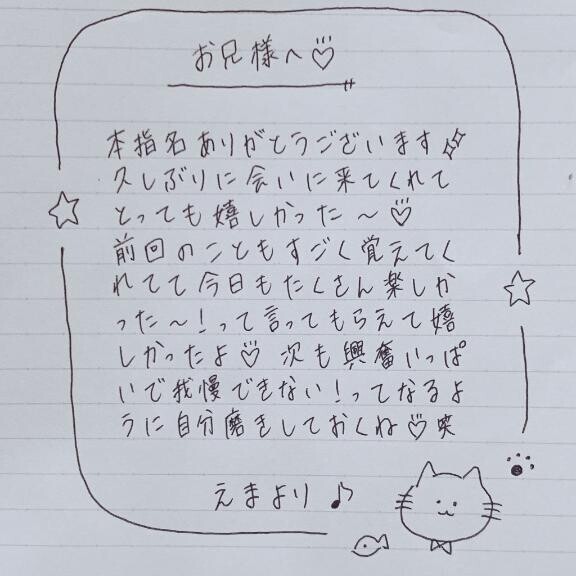 お兄様へ♡
本指名ありがとうございます✨
久しぶりに会いに来てくれて
とっても嬉しかった〜♡
前回のこともすごく覚えてく
れてて今日もたくさん楽しか
った〜！って言ってもらえて嬉
しかったよ♡ 次も興奮いっぱ
いで我慢できない！ってなるよ
うに自分磨きしておくね♡笑
えまより♪